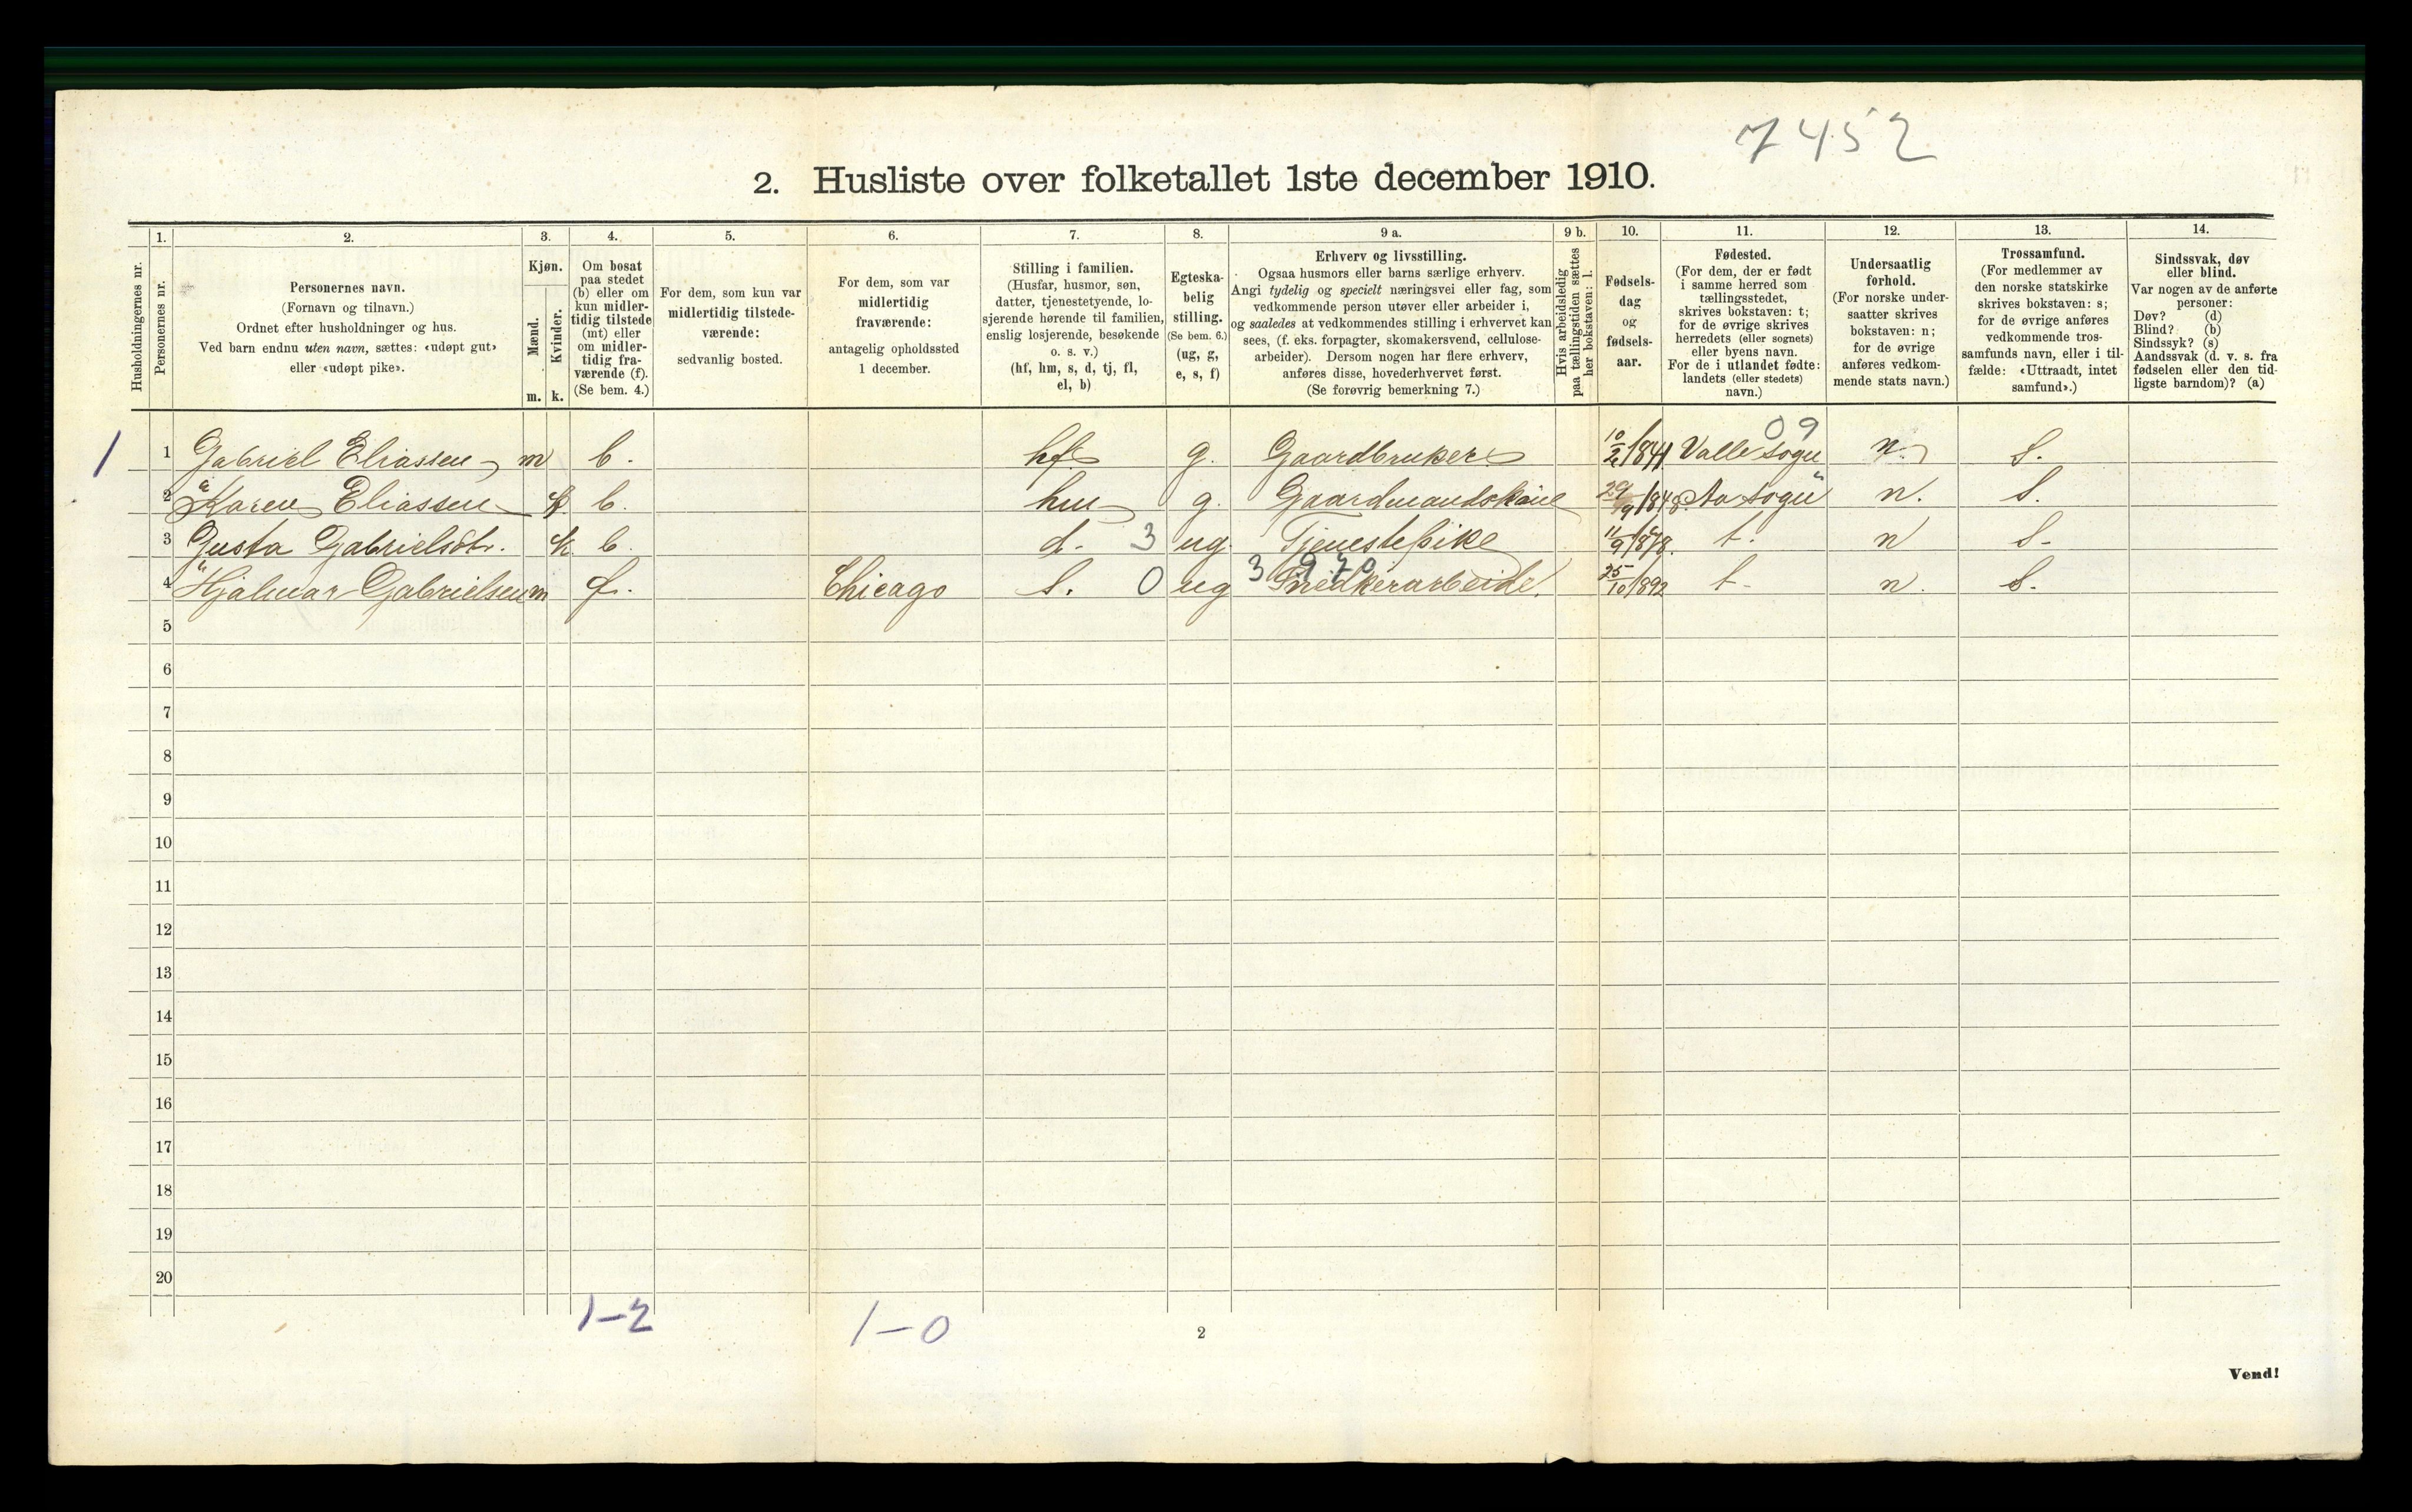 7452
2. Husliste over folketallet 1ste december 1910.
Husholdningernes nr.
1.
Personernes nr.
2.
Personernes navn.
(Fornavn og tilnavn.)
Ordnet efter husholdninger og hus.
Ved barn endnu uten navn, sættes: «udøpt gut»
eller «udøpt pike».
3.
Kjøn.
Mænd.
Kvinder.
m. k.
4.
Om bosat
paa stedet
(b) eller om
kun midler-
tidig tilstede
(mt) eller
om midler-
tidig fra-
værende (f).
(Se bem. 4.)
5.
For dem, som kun var
midlertidig tilstede-
værende:
sedvanlig bosted.
6.
For dem, som var
midlertidig
fraværende:
antagelig opholdssted
1 december.
7.
Stilling i familien.
(Husfar, husmor, søn,
datter, tjenestetyende, lo-
sjerende hørende til familien,
enslig losjerende, besøkende
o. s. v.)
(hf, hm, s, d, tj, fl,
el, b)
8.
Egteska-
belig
stilling.
(Se bem. 6.)
(ug, g,
e, s, f)
9 a.
Erhverv og livsstilling.
Ogsaa husmors eller barns særlige erhverv.
Angi tydelig og specielt næringsvei eller fag, som
vedkommende person utøver eller arbeider i,
og saaledes at vedkommendes stilling i erhvervet kan
sees, (f. eks. forpagter, skomakersvend, cellulose-
arbeider). Dersom nogen har flere erhverv,
anføres disse, hovederhvervet først.
(Se forøvrig bemerkning 7.)
9 b.
Hvis arbeidsledig
paa tællingstiden sættes
her bokstaven: l.
10.
Fødsels-
dag
og
fødsels-
aar.
11.
Fødested.
(For dem, der er født
i samme herred som
tællingsstedet,
skrives bokstaven: t;
for de øvrige skrives
herredets (eller sognets)
eller byens navn.
For de i utlandet fødte:
landets (eller stedets)
navn.)
12.
Undersaatlig
forhold.
(For norske under-
saatter skrives
bokstaven: n;
for de øvrige
anføres vedkom-
mende stats navn.)
13.
Trossamfund.
(For medlemmer av
den norske statskirke
skrives bokstaven: s;
for de øvrige anføres
vedkommende tros-
samfunds navn, eller i til-
fælde: «Uttraadt, intet
samfund».)
14.
Sindssvak, døv
eller blind.
Var nogen av de anførte
personer:
Døv? (d)
Blind? (b)
Sindssyk? (s)
Aandssvak (d. v. s. fra
fødselen eller den tid-
ligste barndom)? (a)
09
1 1 Gabriel Eliassen m b. hf g. Gaardbruker 10/2 1841 Valle sogn n. S.
2 Karen Eliassen k. b. hm g. Gaardmandskone 29/9 1848 n. S.
3 Gusta Gabrielsdtr. k. b. d. 3 ug. Tjenestepike 11/9 1878. t. n S.
3 9 7 0
4 Hjalmar Gabrielsen m f. Chicago s. 0 ug Snedkerarbeide. 25/10 1892 t. n. S.
5
6
7
8
9
10
11
12
13
14
15
16
17
18
19
20
1-2
1-0
2
Vend!